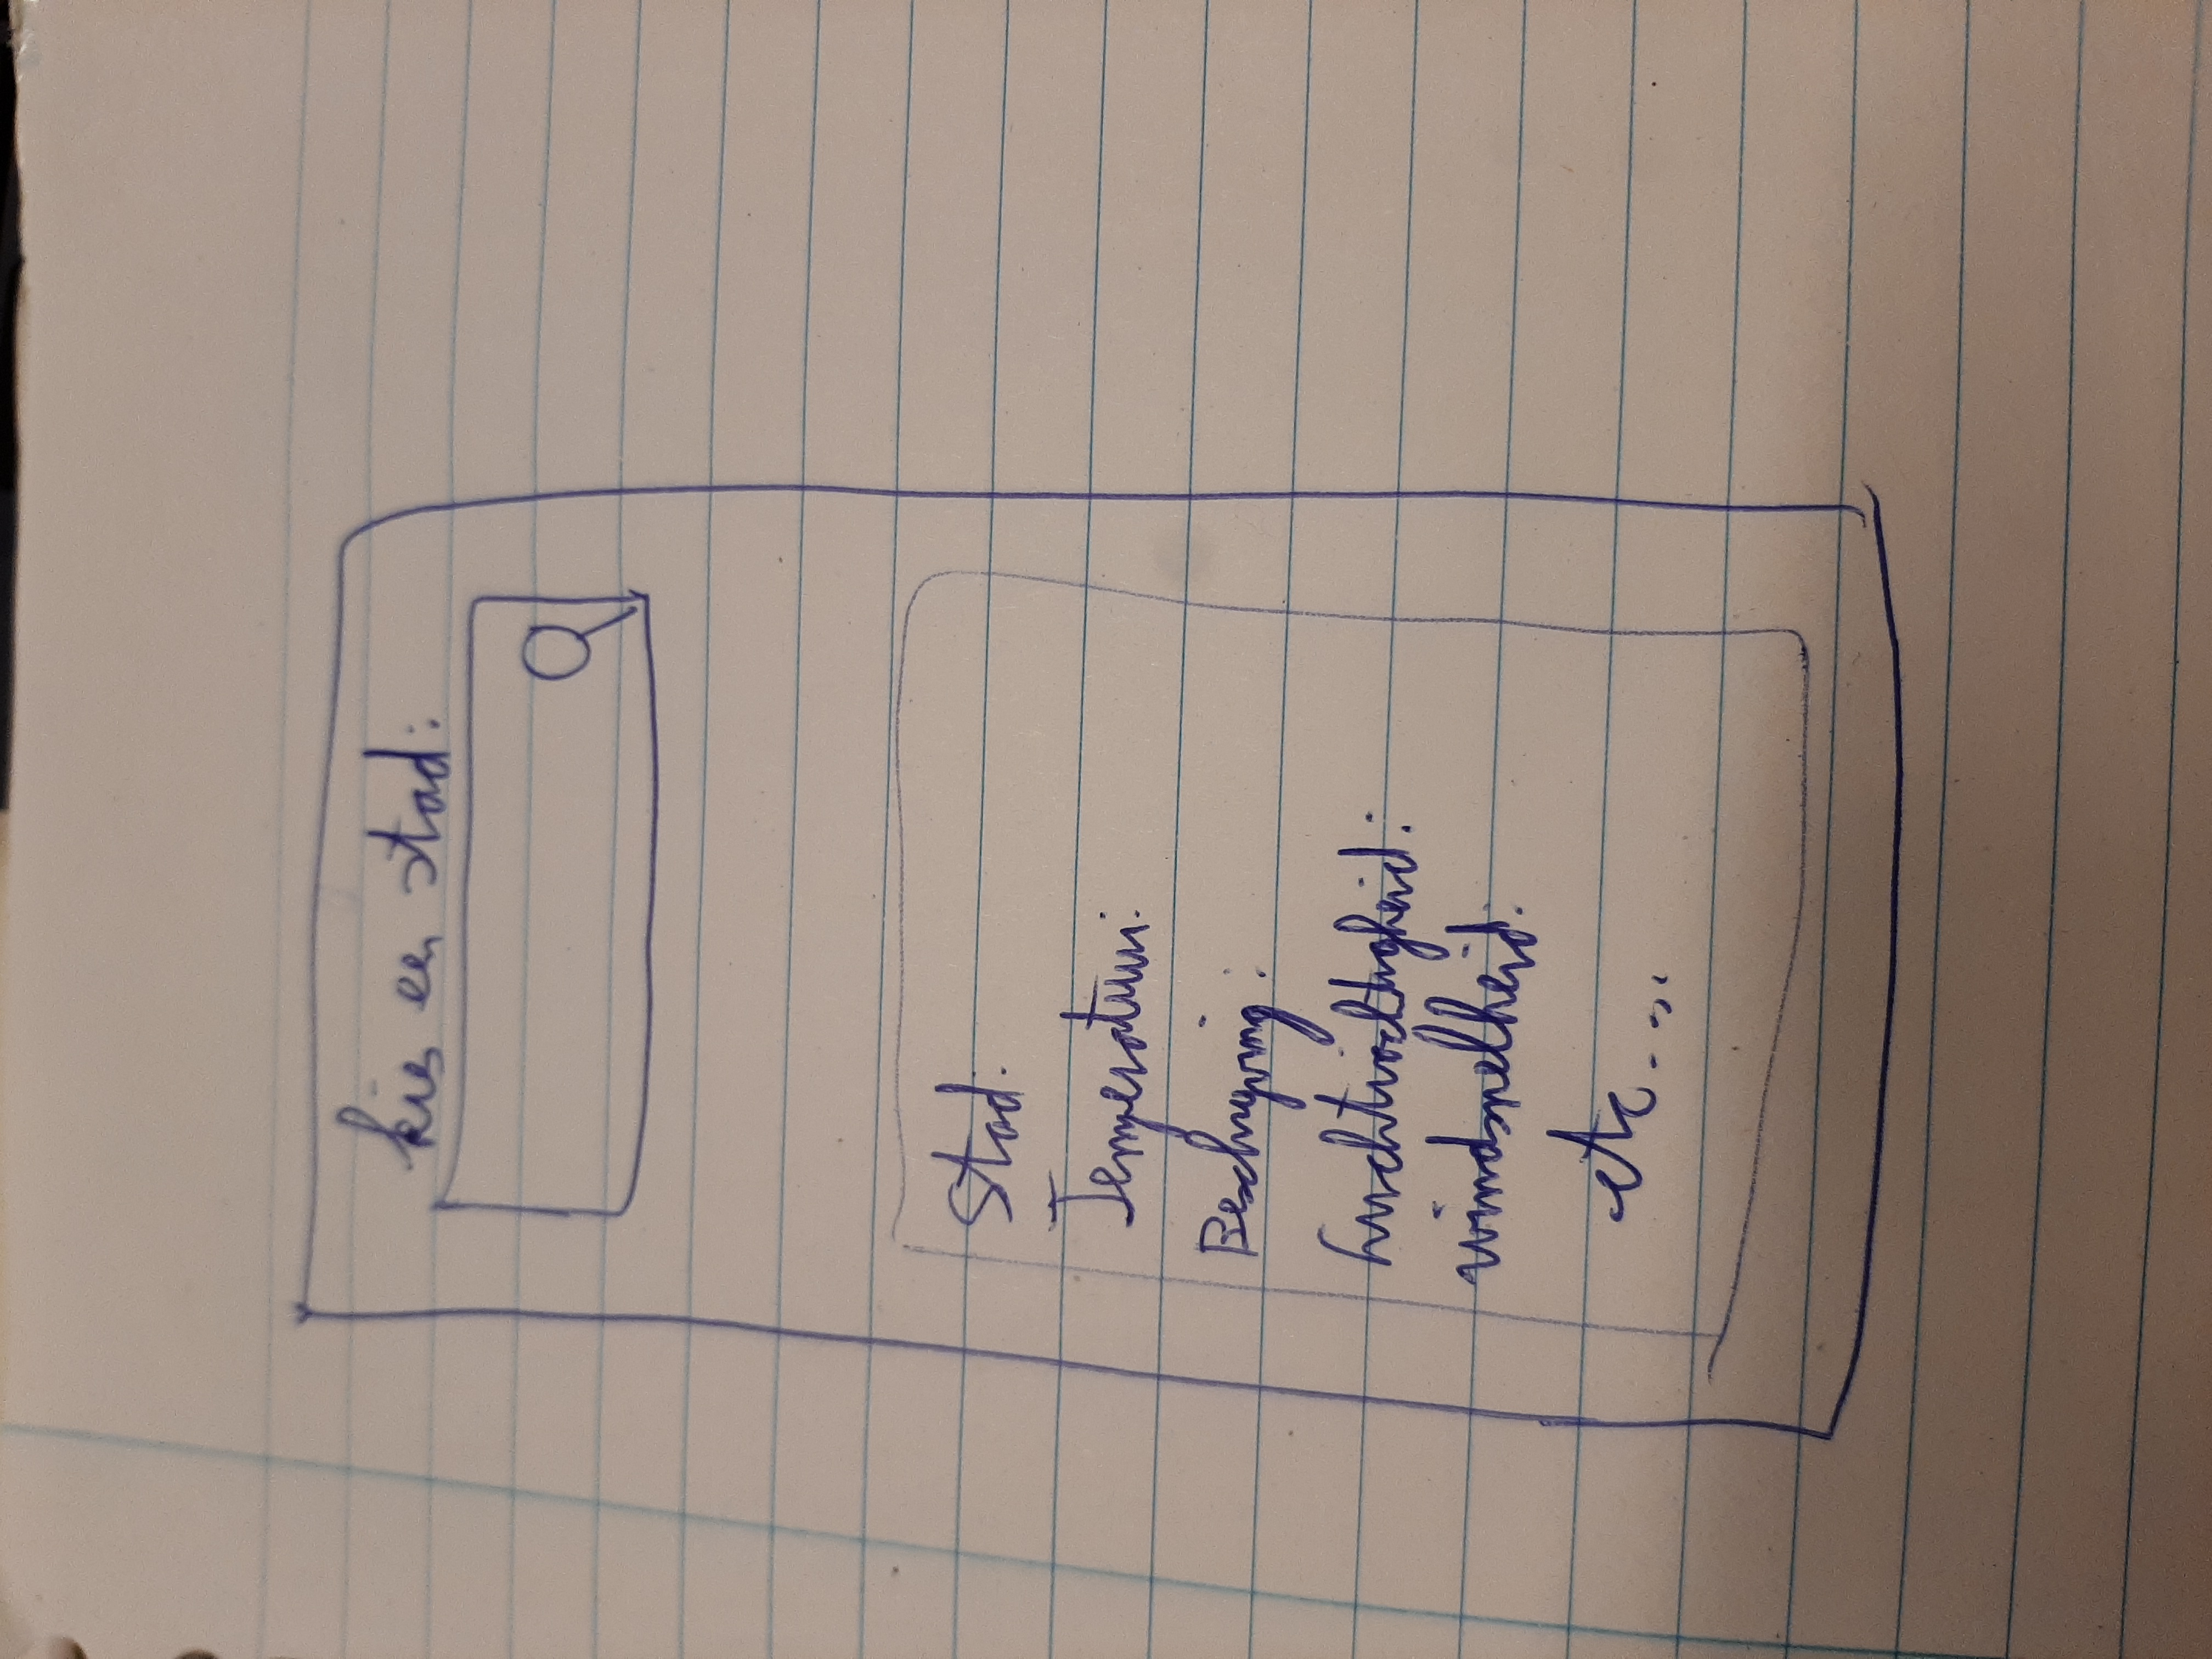 kies een stad:
Stad:
Temperatuur:
Beschrijving:
Luchtvochtigheid:
windsnelheid:
etc....